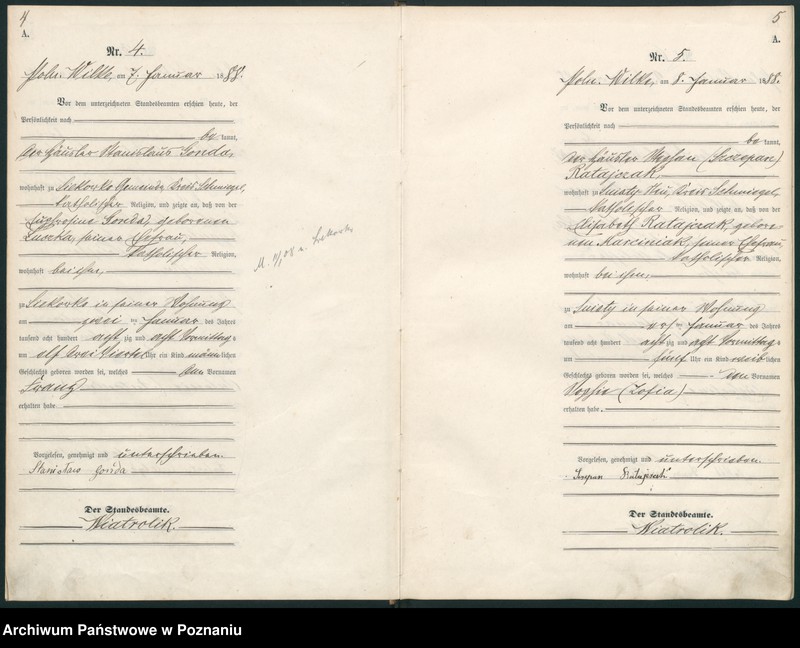 4
A.
Nr. 4.
Poln. Wilke, am 7. Januar 1888.
Vor dem unterzeichneten Standesbeamten erschien heute, der
Persönlichkeit nach
be kannt,
der Häusler Stanislaus Gonda,
wohnhaft zu Sierkowko Gemeinde, Kreis Schmiegel,
katholischer Religion, und zeigte an, daß von der
Gonda, geborenen
seiner Ehefrau,
katholischer Religion,
wohnhaft bei ihm,
zu in seiner Wohnung
am zwei ten Januar des Jahres
tausend acht hundert acht zig und acht Vormittag s
um elf drei Viertel Uhr ein Kind männ lichen
Geschlechts geboren worden sei, welches den Vornamen
Franz
erhalten habe
Vorgelesen, genehmigt und unterschrieben.
Stanislaw Gonda
Der Standesbeamte.
Wiatrolik.
5
A.
Nr. 5.
Poln. Wilke, am 8. Januar 1888.
Vor dem unterzeichneten Standesbeamten erschien heute, der
Persönlichkeit nach
be kannt,
der Häusler Stephan (Szczepan)
Ratajczak,
wohnhaft zu Smaty Kreis Schmiegel,
katholischer Religion, und zeigte an, daß von der
Elisabeth Ratajczak, gebore
nen Marciniak, seiner Ehefrau,
katholischer Religion,
wohnhaft bei ihm,
zu in seiner Wohnung
am ers ten Januar des Jahres
tausend acht hundert acht zig und acht Vormittag s
um fünf Uhr ein Kind weib lichen
Geschlechts geboren worden sei, welches den Vornamen
Sophie (Zofia)
erhalten habe.
Vorgelesen, genehmigt und unterschrieben.
Szczepan Ratajczak
Der Standesbeamte.
Wiatrolik.
Archiwum Państwowe w Poznaniu